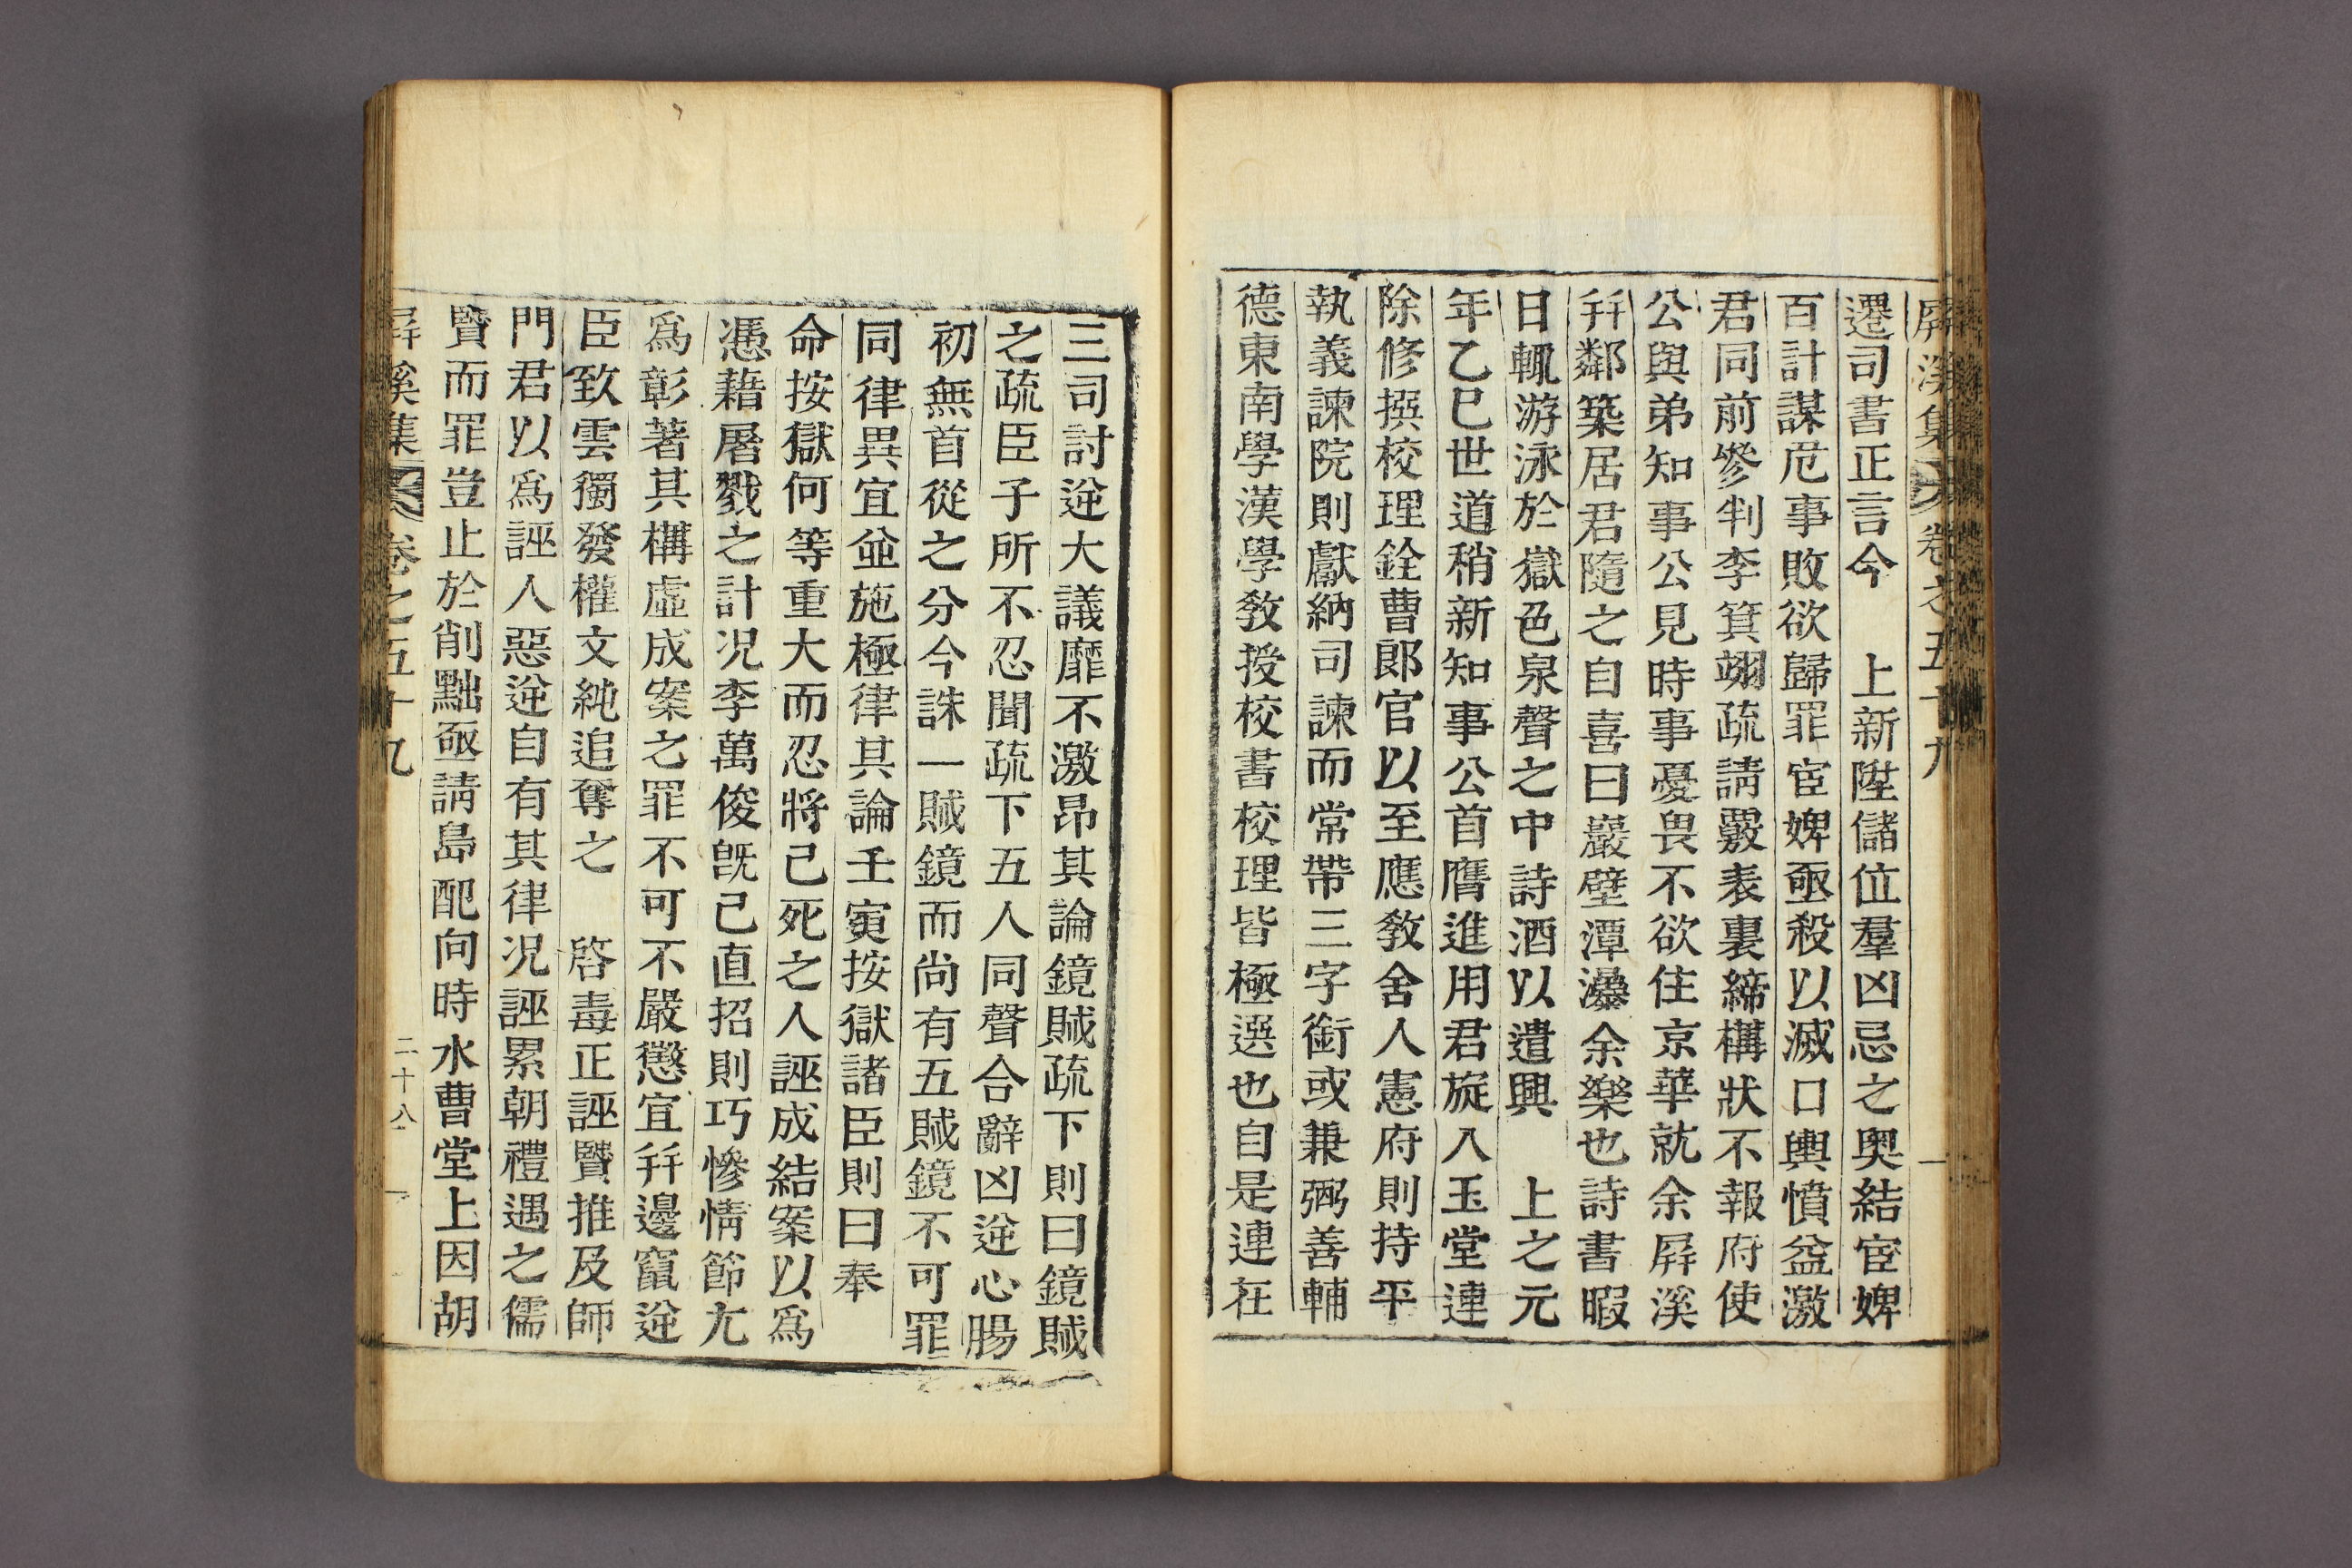 屛溪集 卷之五十九
遷司書正言今 上新陞儲位羣凶忌之奧結宦婢
百計謀危事敗欲歸罪宦婢亟殺以滅口輿憤益激
君同前參判李箕翊疏請覈表裏締構狀不報府使
公與弟知事公見時事憂畏不欲住京華就余屛溪
幷鄰築居君隨之自喜曰巖壁潭瀑余樂也詩書暇
日輒游泳於嶽色泉聲之中詩酒以遣興 上之元
年乙巳世道稍新知事公首膺進用君旋入玉堂連
除修撰校理銓曹郞官以至應敎舍人憲府則持平
執義諫院則獻納司諫而常帶三字銜或兼弼善輔
德東南學漢學敎授校書校理皆極選也自是連在
三司討逆大議靡不激昂其論鏡賊疏下則曰鏡賊
之疏臣子所不忍聞疏下五人同聲合辭凶逆心腸
初無首從之分今誅一賊鏡而尚有五賊鏡不可罪
同律異宜並施極律其論壬寅按獄諸臣則曰奉
命按獄何等重大而忍將已死之人誣成結案以爲
憑藉屠戮之計况李萬俊旣已直招則巧慘情節尤
爲彰著其構虛成案之罪不可不嚴懲宜幷邊竄逆
臣致雲獨發權文純追奪之 啓毒正誣賢推及師
門君以爲誣人惡逆自有其律况誣累朝禮遇之儒
賢而罪豈止於削黜亟請島配向時水曹堂上因胡
屛溪集 卷之五十九 二十八